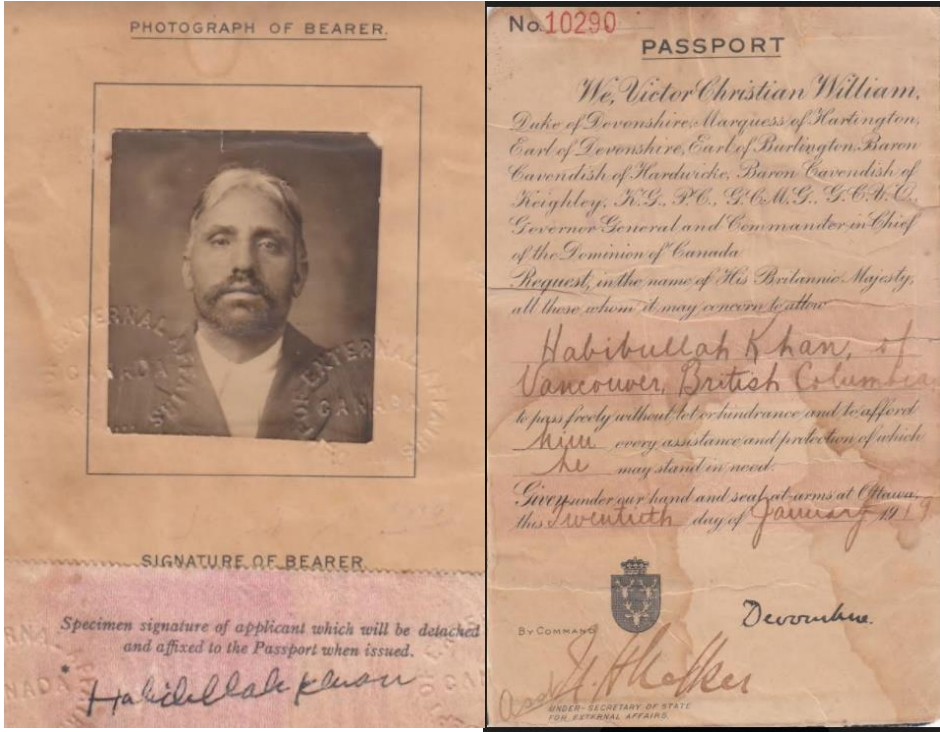 PHOTOGRAPH OF BEARER.
EXTERNAL AFFAIRS
CANADA
FOR EXTERNAL AFFAIRS
CANADA
SIGNATURE OF BEARER
Specimen signature of applicant which will be detached
and affixed to the Passport when issued.
* Habibullah Khan
No. 10290
PASSPORT
We, Victor Christian William,
Duke of Devonshire, Marquess of Hartington,
Earl of Devonshire, Earl of Burlington, Baron
Cavendish of Hardwicke, Baron Cavendish of
Keighley, K.G., P.C., G.C.M.G., G.C.V.O.,
Governor General and Commander in Chief
of the Dominion of Canada
Request, in the name of His Britannic Majesty,
all those whom it may concern to allow
Habibullah Khan, of
Vancouver, British Columbia
to pass freely without let or hindrance and to afford
him every assistance and protection of which
he may stand in need.
Given under our hand and seal-at-arms at Ottawa,
this Twentieth day of January 1919
Devonshire.
BY COMMAND
UNDER-SECRETARY OF STATE
FOR EXTERNAL AFFAIRS.